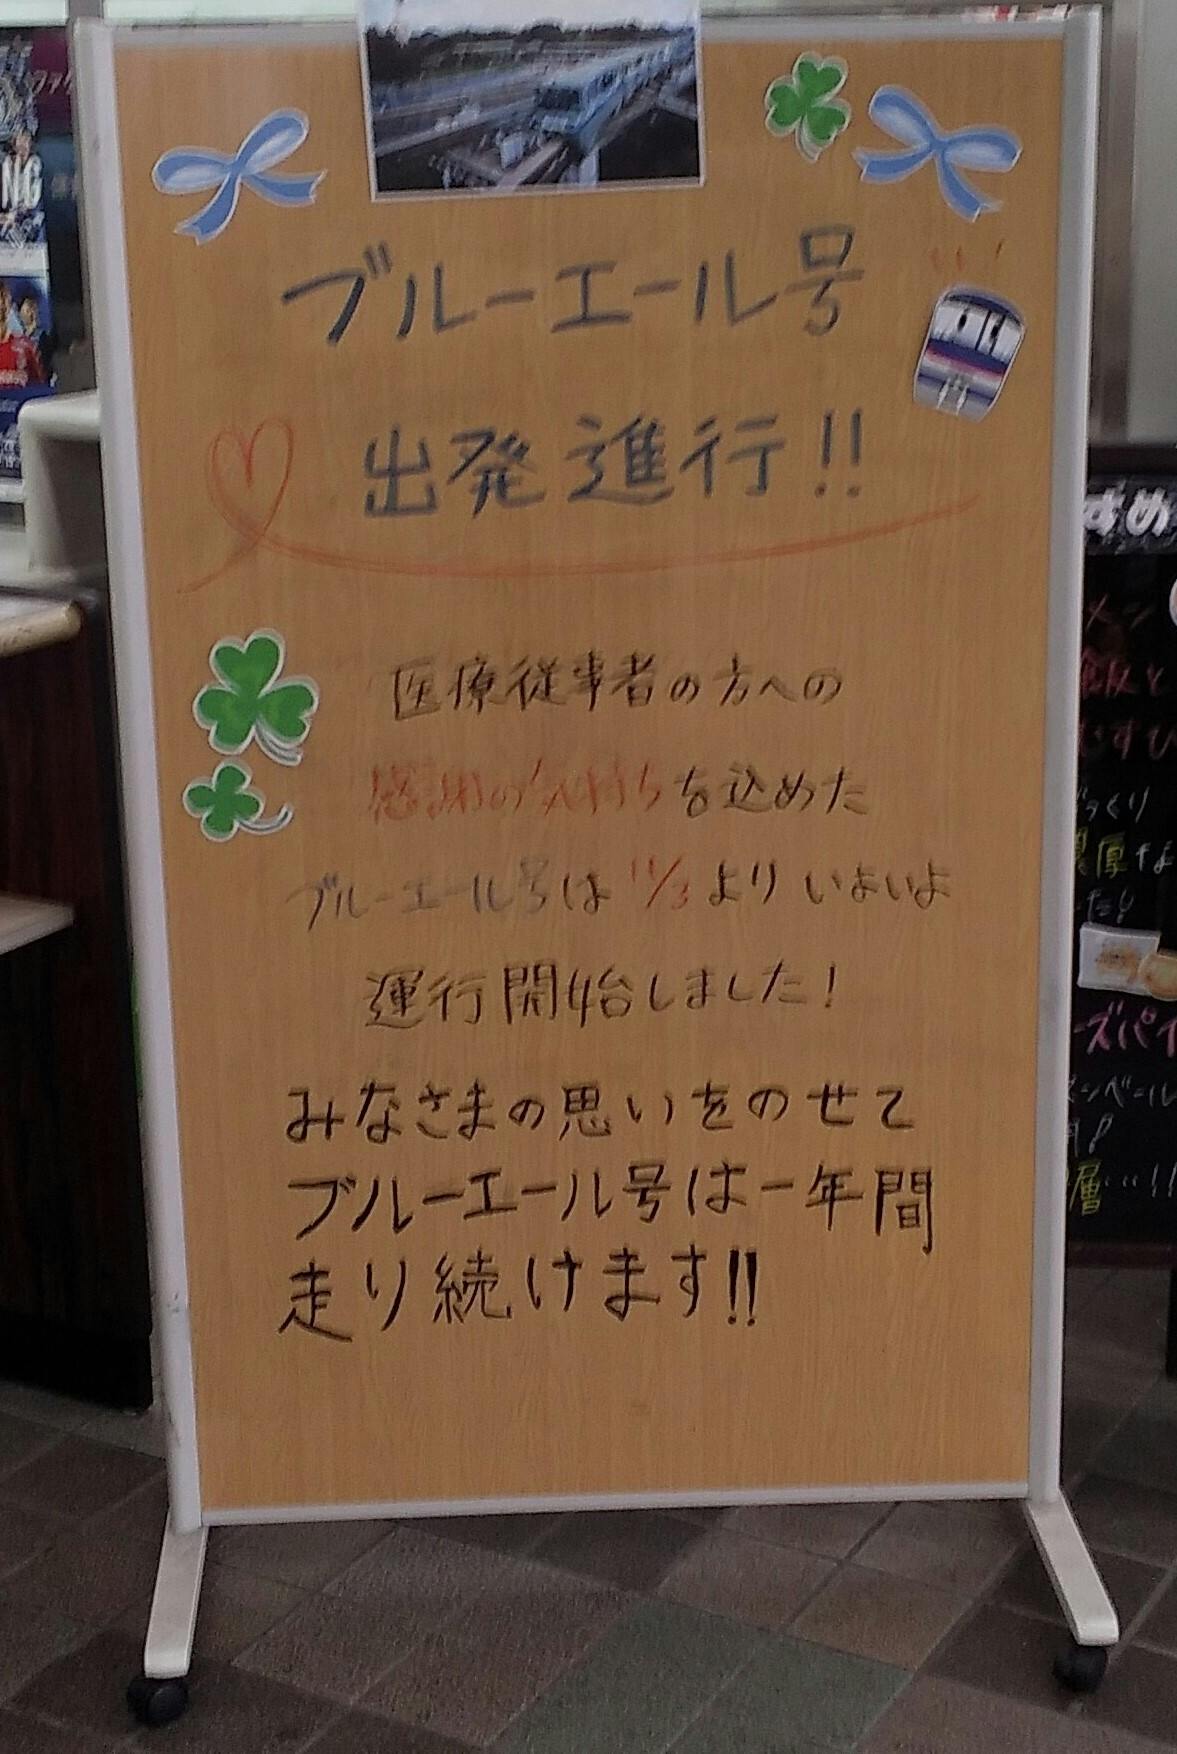 ブルーエール号
出発進行!!
医療従事者の方への
感謝の気持ちを込めた
ブルーエール号は11/3よりいよいよ
運行開始しました!
みなさまの思いをのせて
ブルーエール号は一年間
走り続けます!!
NG
すめ
飯と
むすび
っくり
濃厚な
ズパイ
層…!!